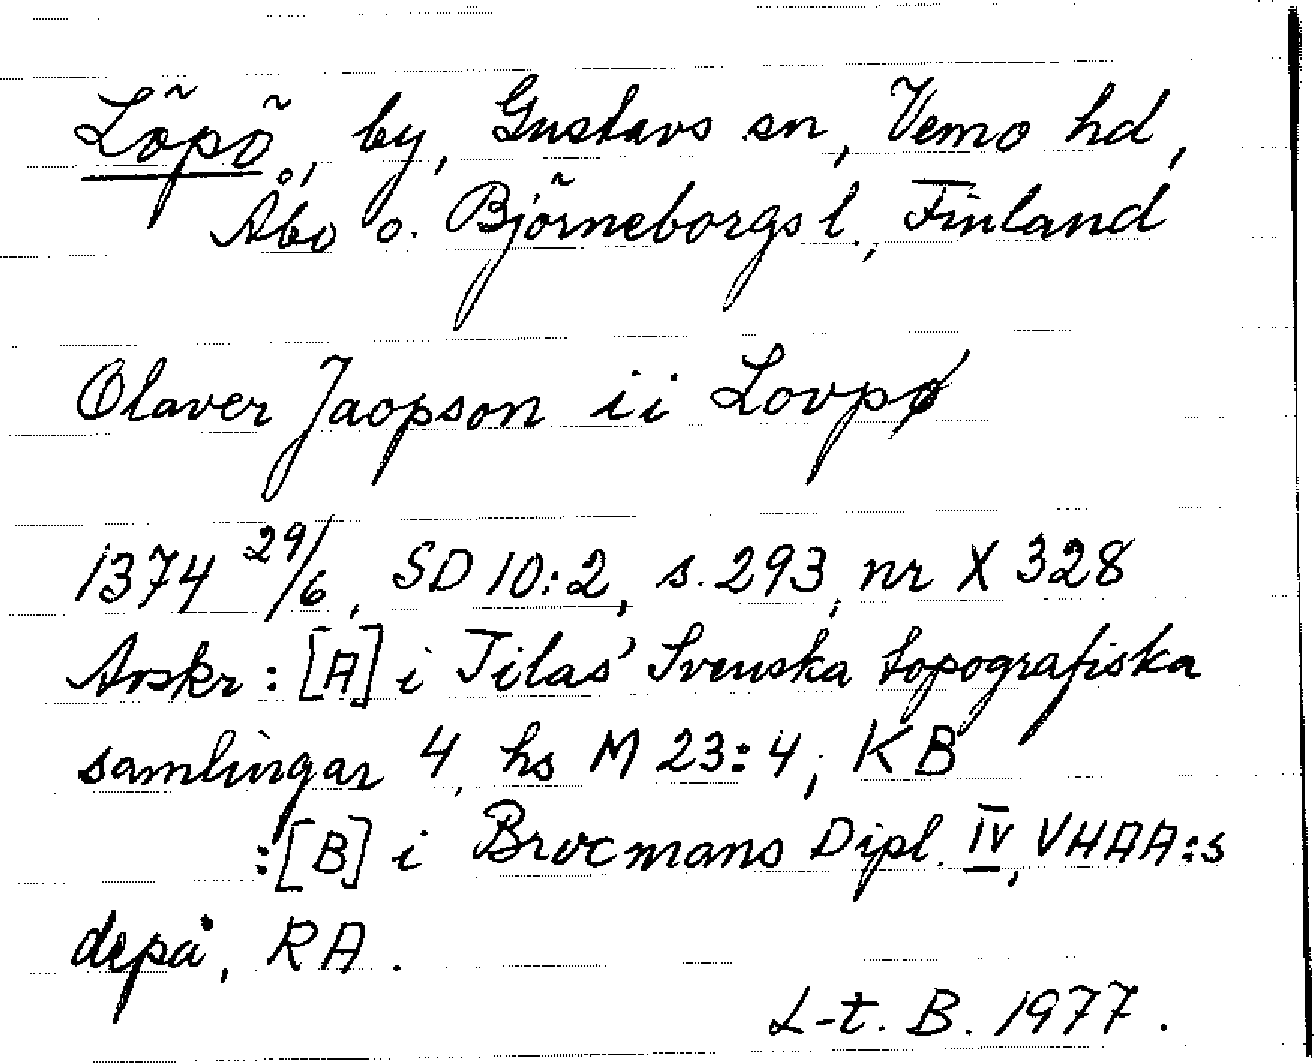 Löpö, by, Gustavs sn, Vemo hd,
Åbo o. Björneborgs l., Finland
Olaver Jaopson ii Lovpø
1374 29/6, SD 10:2, s. 293, nr X 328
Avskr: [A] i Tilas' Svenska topografiska
samlingar 4, hs M 23:4, KB
:[B] i Brocmans Dipl. IV, VHAA:s
depå, RA.
L-t. B. 1977.